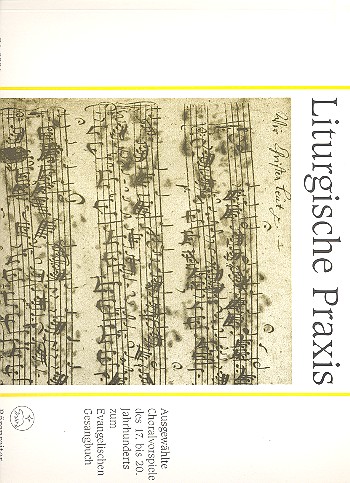 Liturgische Praxis
Ausgewählte
Choralvorspiele
des 17. bis 20.
Jahrhunderts
zum
Evangelischen
Gesangbuch
Bärenreiter